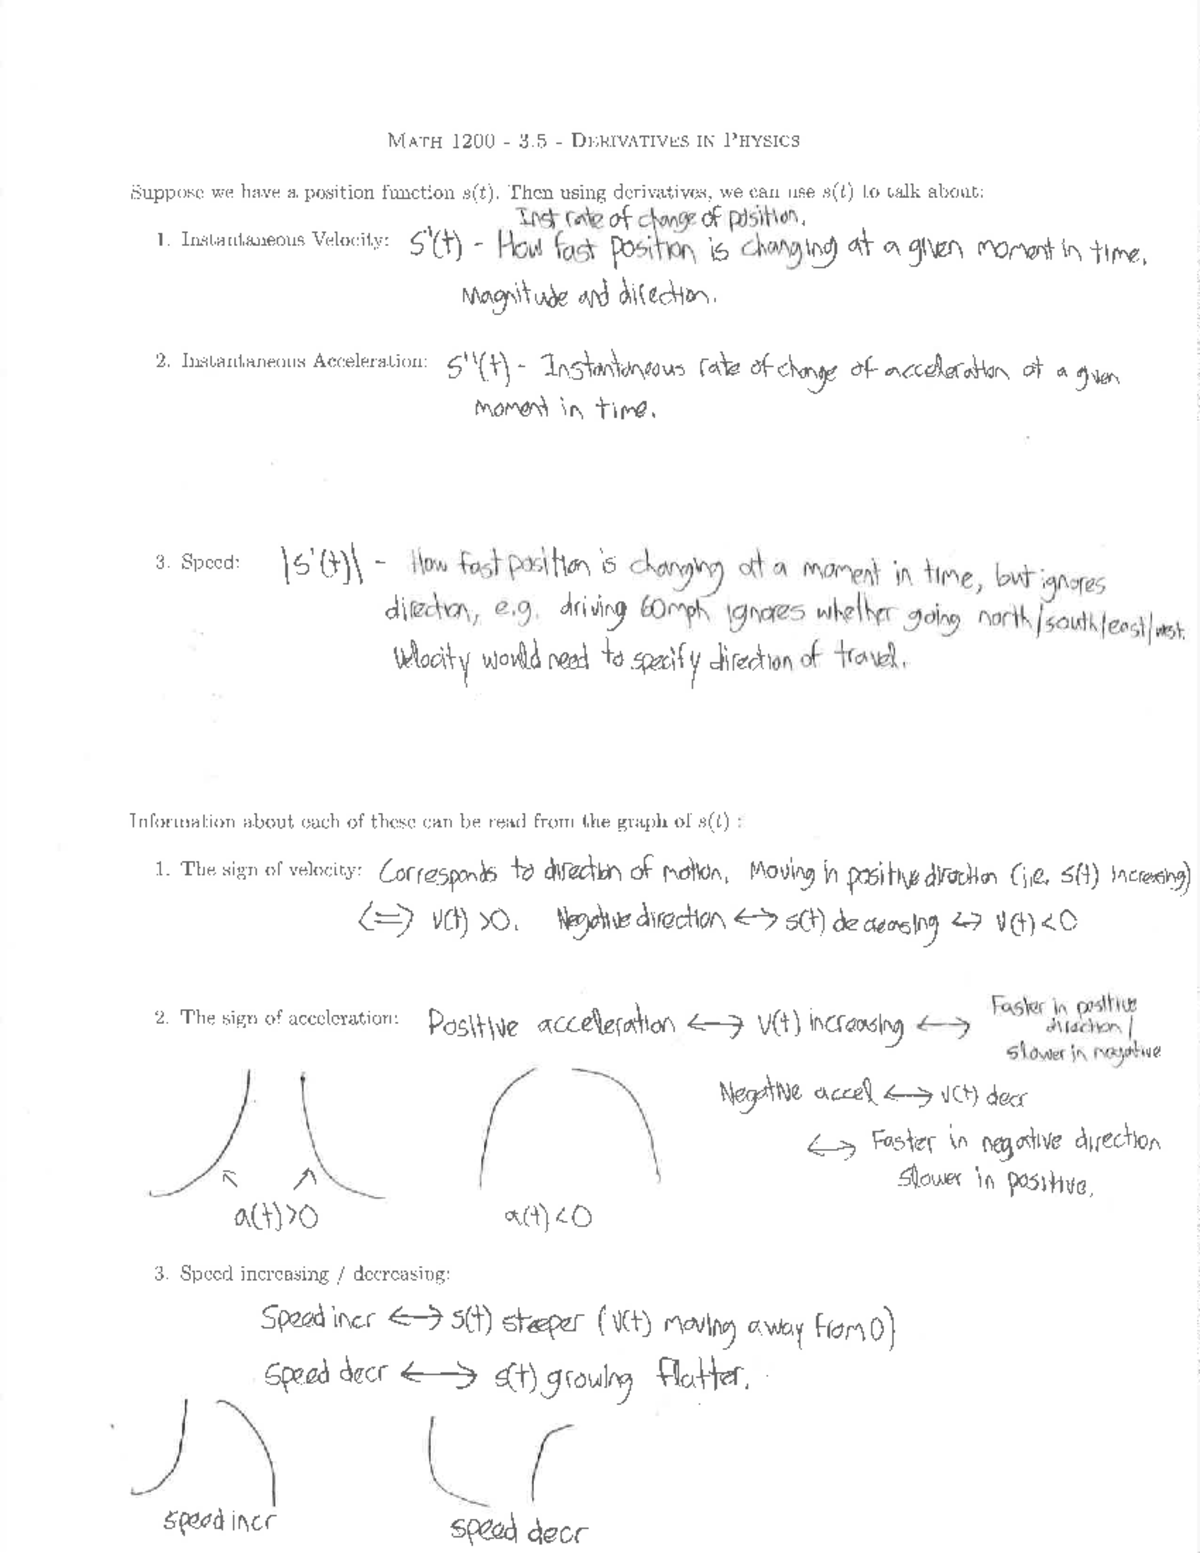 MATH 1200 - 3.5 - DERIVATIVES IN PHYSICS
Suppose we have a position function s(t). Then using derivatives, we can use s(t) to talk about:
Inst rate of change of position.
1. Instantaneous Velocity: s'(t) - How fast position is changing at a given moment in time.
Magnitude and direction.
2. Instantaneous Acceleration: s''(t) - Instantaneous rate of change of acceleration at a given
moment in time.
3. Speed: |s'(t)| - How fast position is changing at a moment in time, but ignores
direction, e.g. driving 60mph ignores whether going north/south/east/west.
Velocity would need to specify direction of travel.
Information about each of these can be read from the graph of s(t) :
1. The sign of velocity: Corresponds to direction of motion. Moving in positive direction (i.e. s(t) increasing)
<=> v(t) >0. Negative direction <-> s(t) decreasing <-> v(t) <0
2. The sign of acceleration: Positive acceleration <-> v(t) increasing <-> Faster in positive
direction/
slower in negative
Negative accel <-> v(t) decr
<-> Faster in negative direction
slower in positive.
a(t)>0 a(t)<0
3. Speed increasing / decreasing:
Speed incr <-> s(t) steeper (v(t) moving away from 0)
Speed decr <-> s(t) growing flatter.
speed incr speed decr